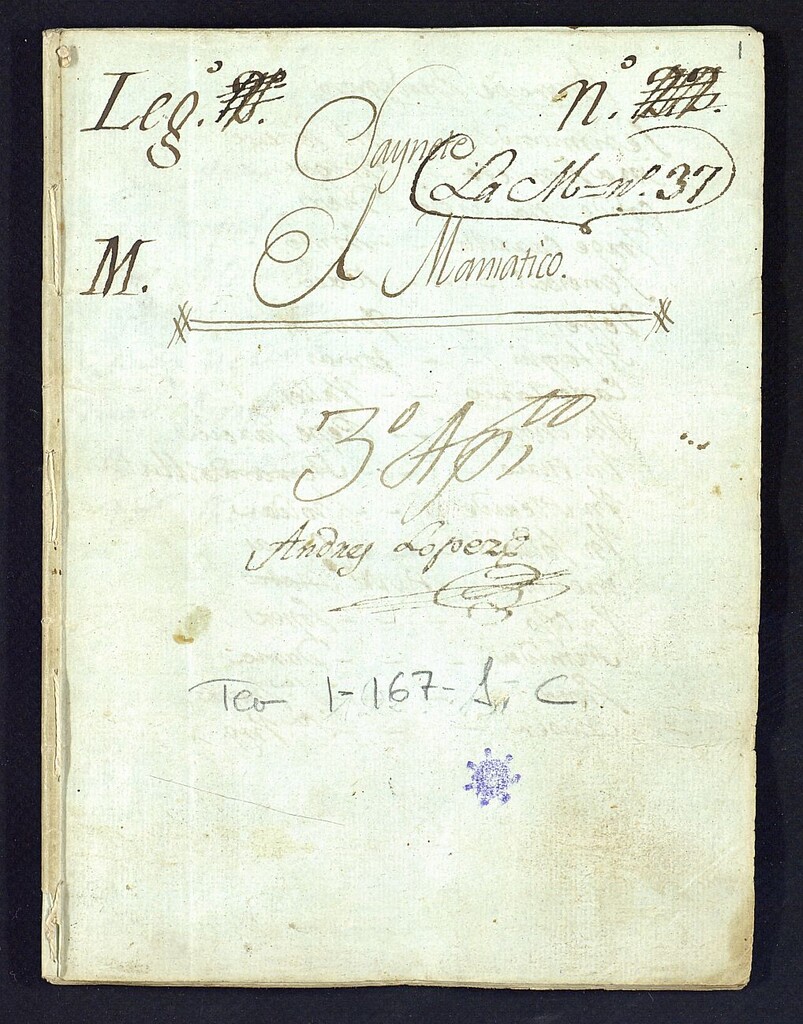 1
Leg.º n.º
Saynete
La M=nº. 37
M. El Maniatico.
3º Apto
Andres Lopez
Tea 1-167-1, C